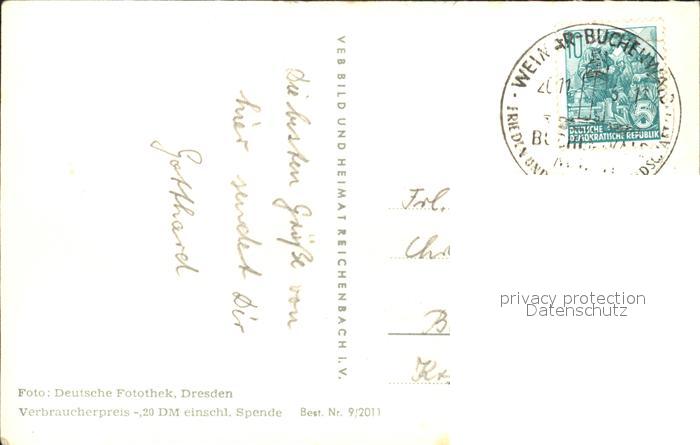 Die besten Grüße von
hier sendet Dir
Gotthard
VEB BILD UND HEIMAT REICHENBACH I. V.
Foto: Deutsche Fotothek, Dresden
Verbraucherpreis -,20 DM einschl. Spende Best. Nr. 9/2011
WEIMAR-BUCHENWALD
10
DEUTSCHE
DEMOKRATISCHE REPUBLIK
Frl.
Chr
B
Kr
privacy protection
Datenschutz